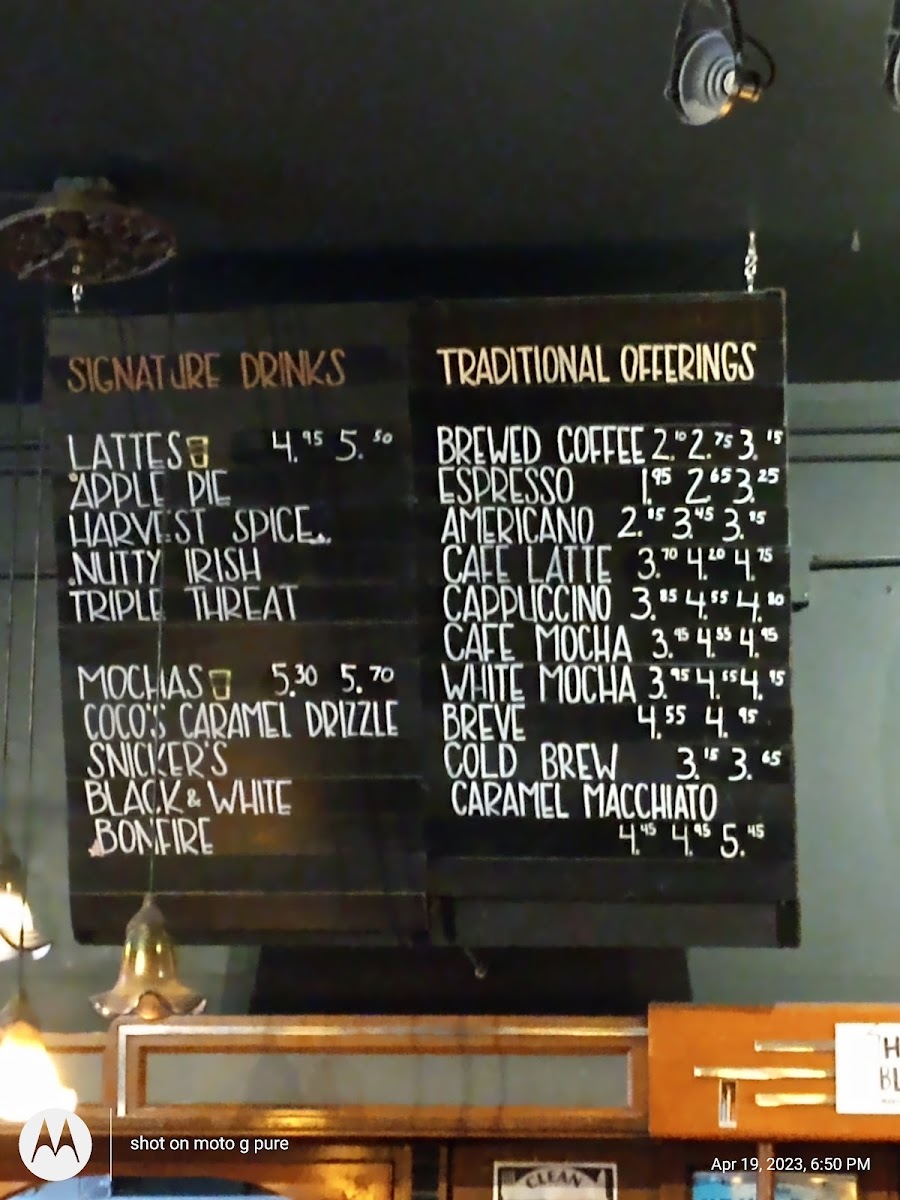 SIGNATURE DRINKS
LATTES 4.95 5.50
APPLE PIE
HARVEST SPICE
NUTTY IRISH
TRIPLE THREAT
MOCHAS 5.30 5.70
COCO'S CARAMEL DRIZZLE
SNICKER'S
BLACK & WHITE
BONFIRE
TRADITIONAL OFFERINGS
BREWED COFFEE 2.10 2.75 3.15
ESPRESSO 1.95 2.65 3.25
AMERICANO 3.45
CAFE LATTE 3.70 4.20 4.75
CAPPUCCINO 3.85 4.55 4.80
CAFE MOCHA 3.95 4.55 4.95
WHITE MOCHA 3.95 4.55 4.95
BREVE 4.55 4.95
COLD BREW 3.15 3.65
CARAMEL MACCHIATO
4.45 4.95 5.45
H
BL
CLEAN
shot on moto g pure
Apr 19, 2023, 6:50 PM